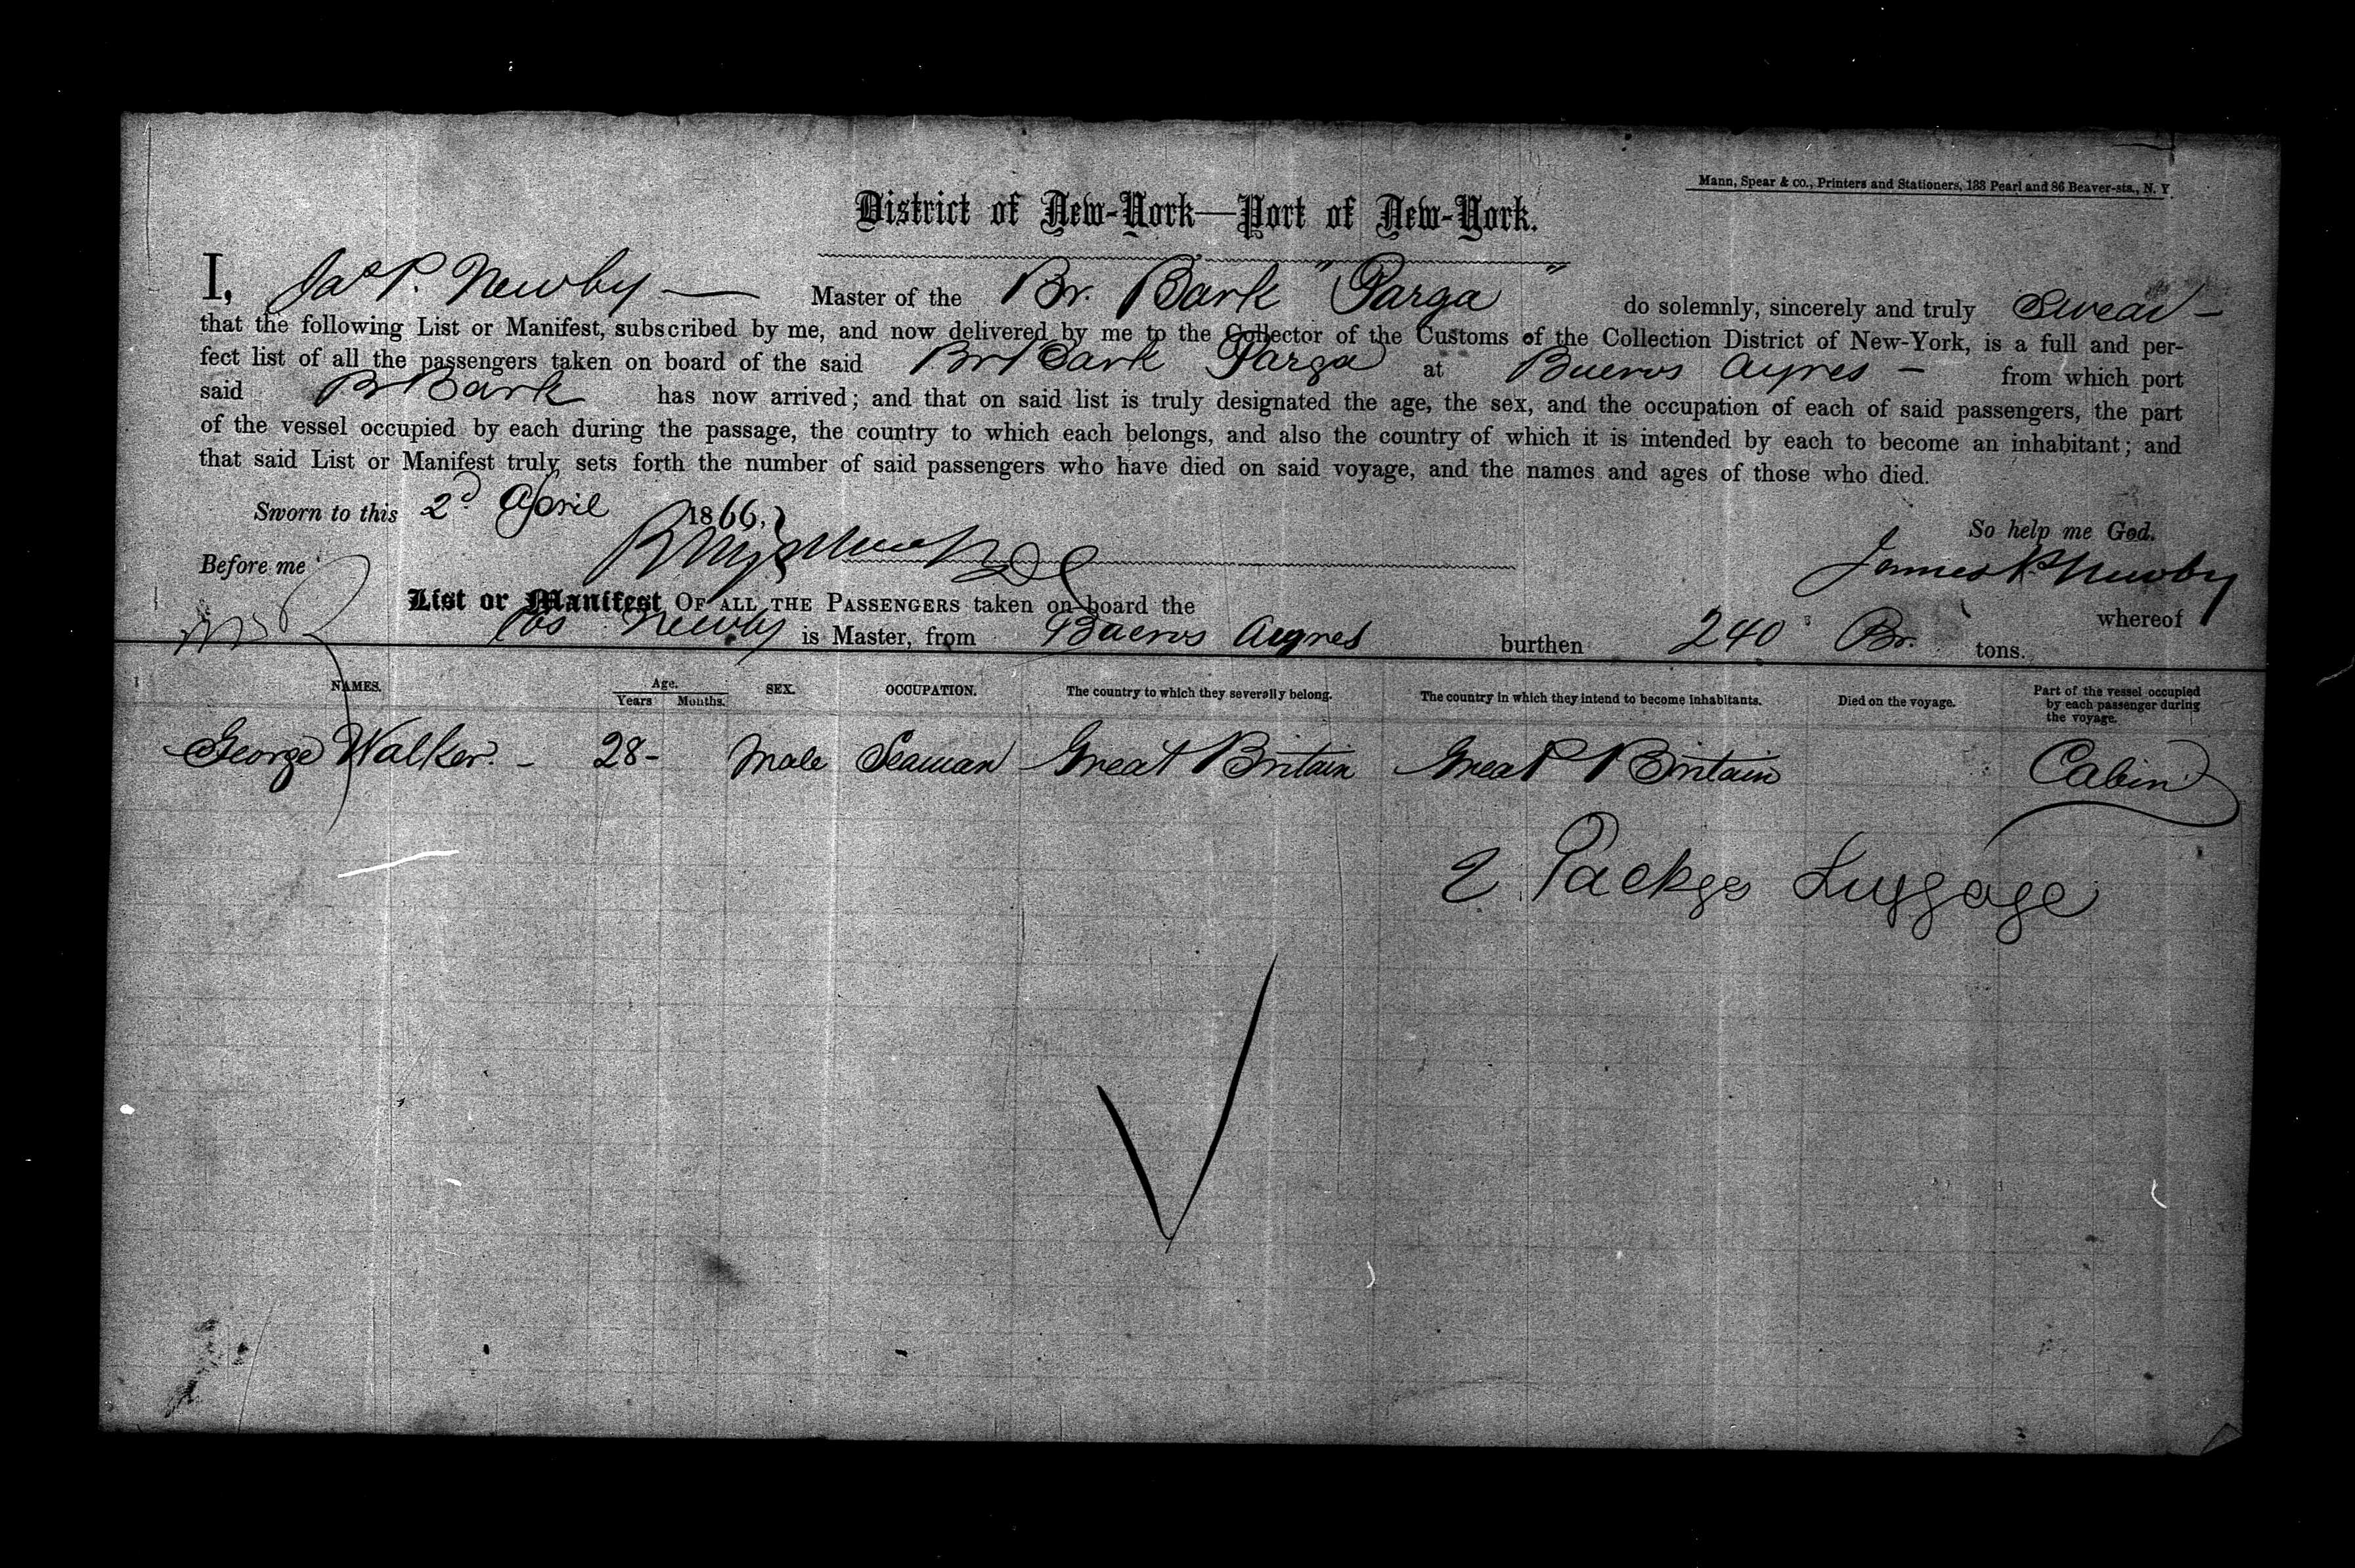 Mann, Spear & co., Printers and Stationers, 133 Pearl and 86 Beaver-sts., N. Y.
District of New-York—Port of New-York.
I, Jas P. Newby — Master of the Br. Bark "Parga" do solemnly, sincerely and truly Swear —
that the following List or Manifest, subscribed by me, and now delivered by me to the Collector of the Customs of the Collection District of New-York, is a full and per-
fect list of all the passengers taken on board of the said Br Bark Parga at Buenos Ayres — from which port
said Br Bark has now arrived; and that on said list is truly designated the age, the sex, and the occupation of each of said passengers, the part
of the vessel occupied by each during the passage, the country to which each belongs, and also the country of which it is intended by each to become an inhabitant; and
that said List or Manifest truly sets forth the number of said passengers who have died on said voyage, and the names and ages of those who died.
Sworn to this 2d April 1866, So help me God.
Before me James P. Newby
List or Manifest OF ALL THE PASSENGERS taken on board the whereof
Newby is Master, from Buenos Ayres burthen 240 Br. tons.
NAMES. Age. Years Months. SEX. OCCUPATION. The country to which they severally belong. The country in which they intend to become inhabitants. Died on the voyage. Part of the vessel occupied by each passenger during the voyage.
George Walker. - 28- Male Seaman Great Britain Great Britain Cabin
2 Packges Luggage